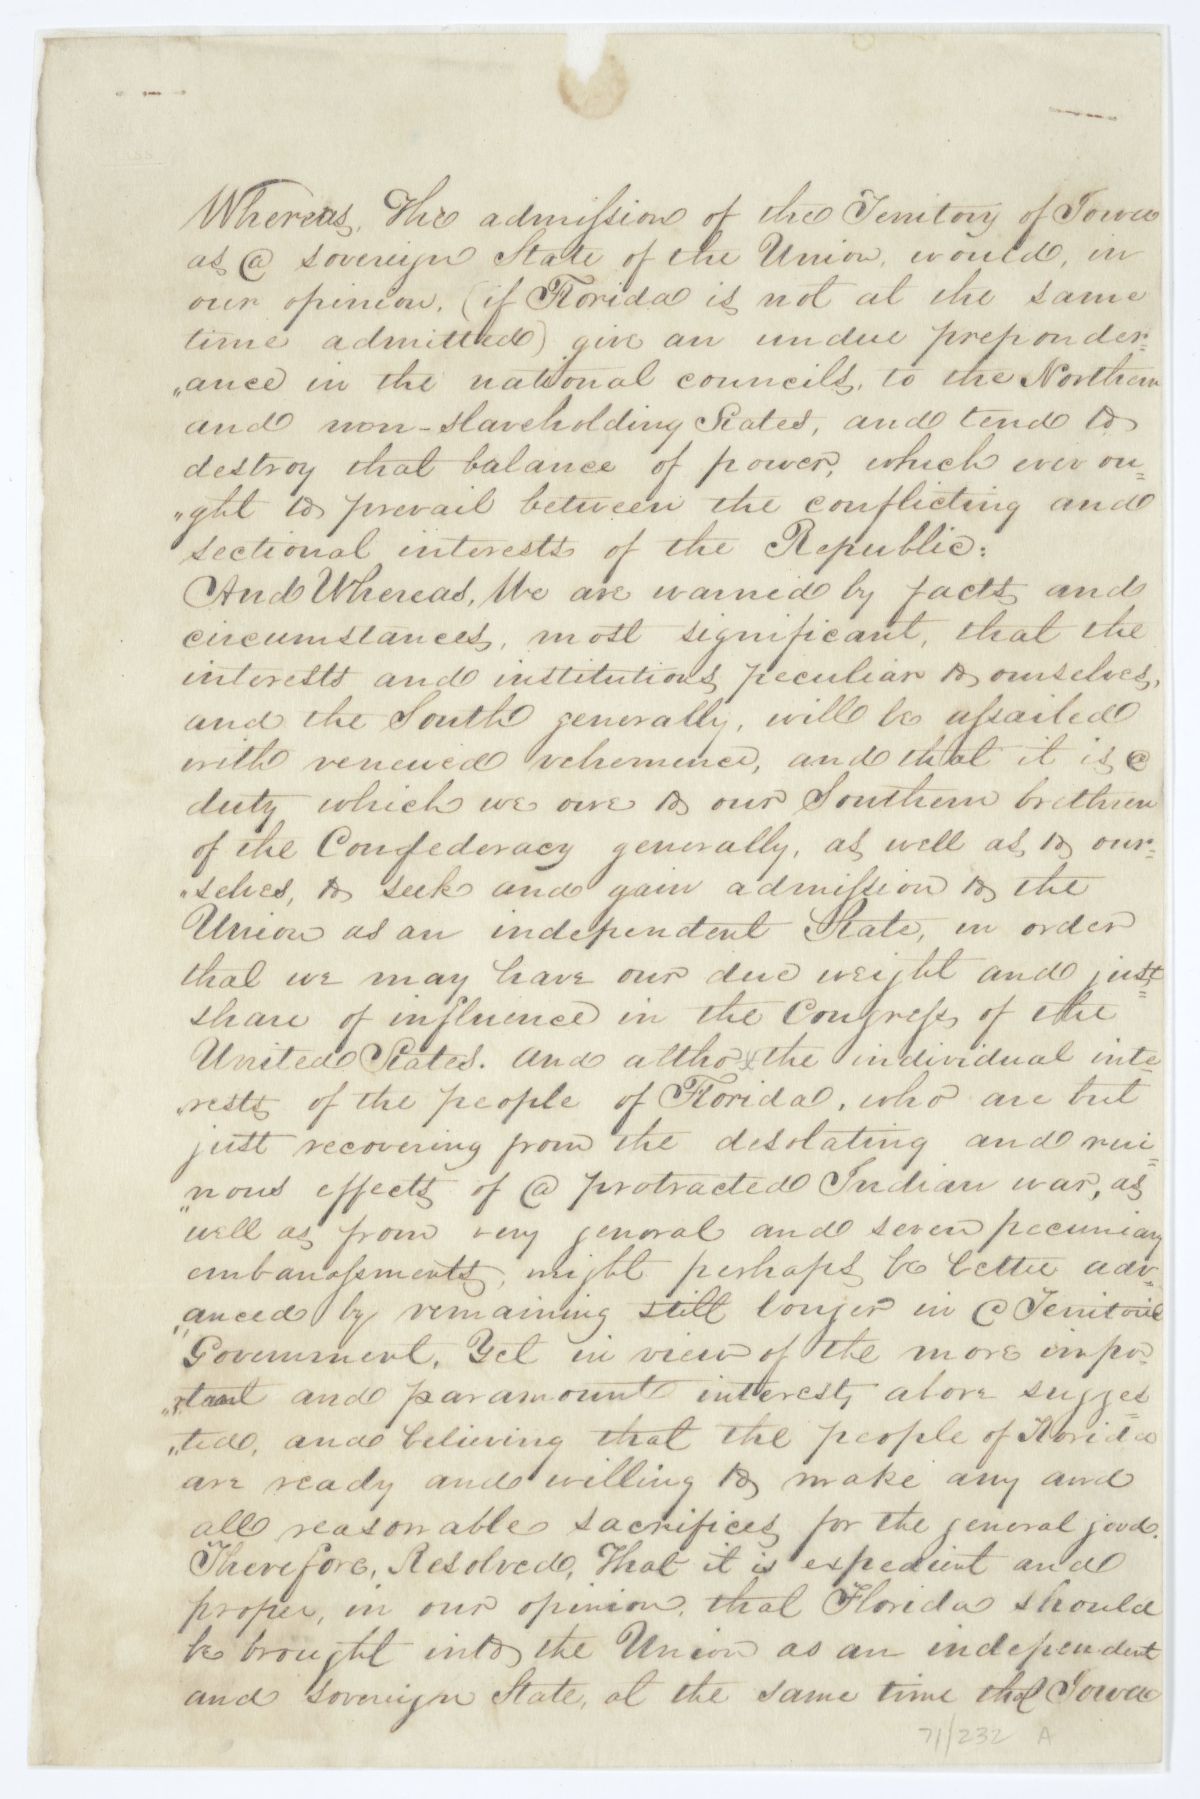 Whereas, The admission of the Territory of Iowa
as a sovereign State of the Union, would, in
our opinion, (if Florida is not at the same
time admitted) give an undue preponder=
„ance in the national councils, to the Northern
and non-slaveholding States, and tend to
destroy that balance of power, which ever ou=
„ght to prevail between the conflicting and
sectional interests of the Republic:
And Whereas, We are warned by facts and
circumstances, most significant, that the
interests and institutions peculiar to ourselves,
and the South generally, will be assailed
with renewed vehemence, and that it is a
duty which we owe to our Southern brethren
of the Confederacy generally, as well as to our=
„selves, to seek and gain admission to the
Union as an independent State, in order
that we may have our due weight and just
share of influence in the Congress of the
United States. And altho' the individual inte=
„rests of the people of Florida, who are but
just recovering from the desolating and rui=
„nous effects of a protracted Indian war, as
well as from very general and severe pecuniary
embarrassments, might perhaps be better adv=
„anced by remaining still longer in a Territorial
Government, Yet in view of the more impo=
„rtant and paramount interests above sugges=
„ted, and believing that the people of Florida
are ready and willing to make any and
all reasonable sacrifices for the general good.
Therefore, Resolved, That it is expedient and
proper, in our opinion, that Florida should
be brought into the Union as an independent
and sovereign State, at the same time that Iowa
71/232 A